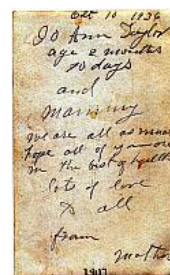 Oct 10 1936
Jo Ann Taylor
age 2 months
10 days
and
Mammy
we are all as much
hope all of you are
in the best of health
lots of love
to all
from
Mother